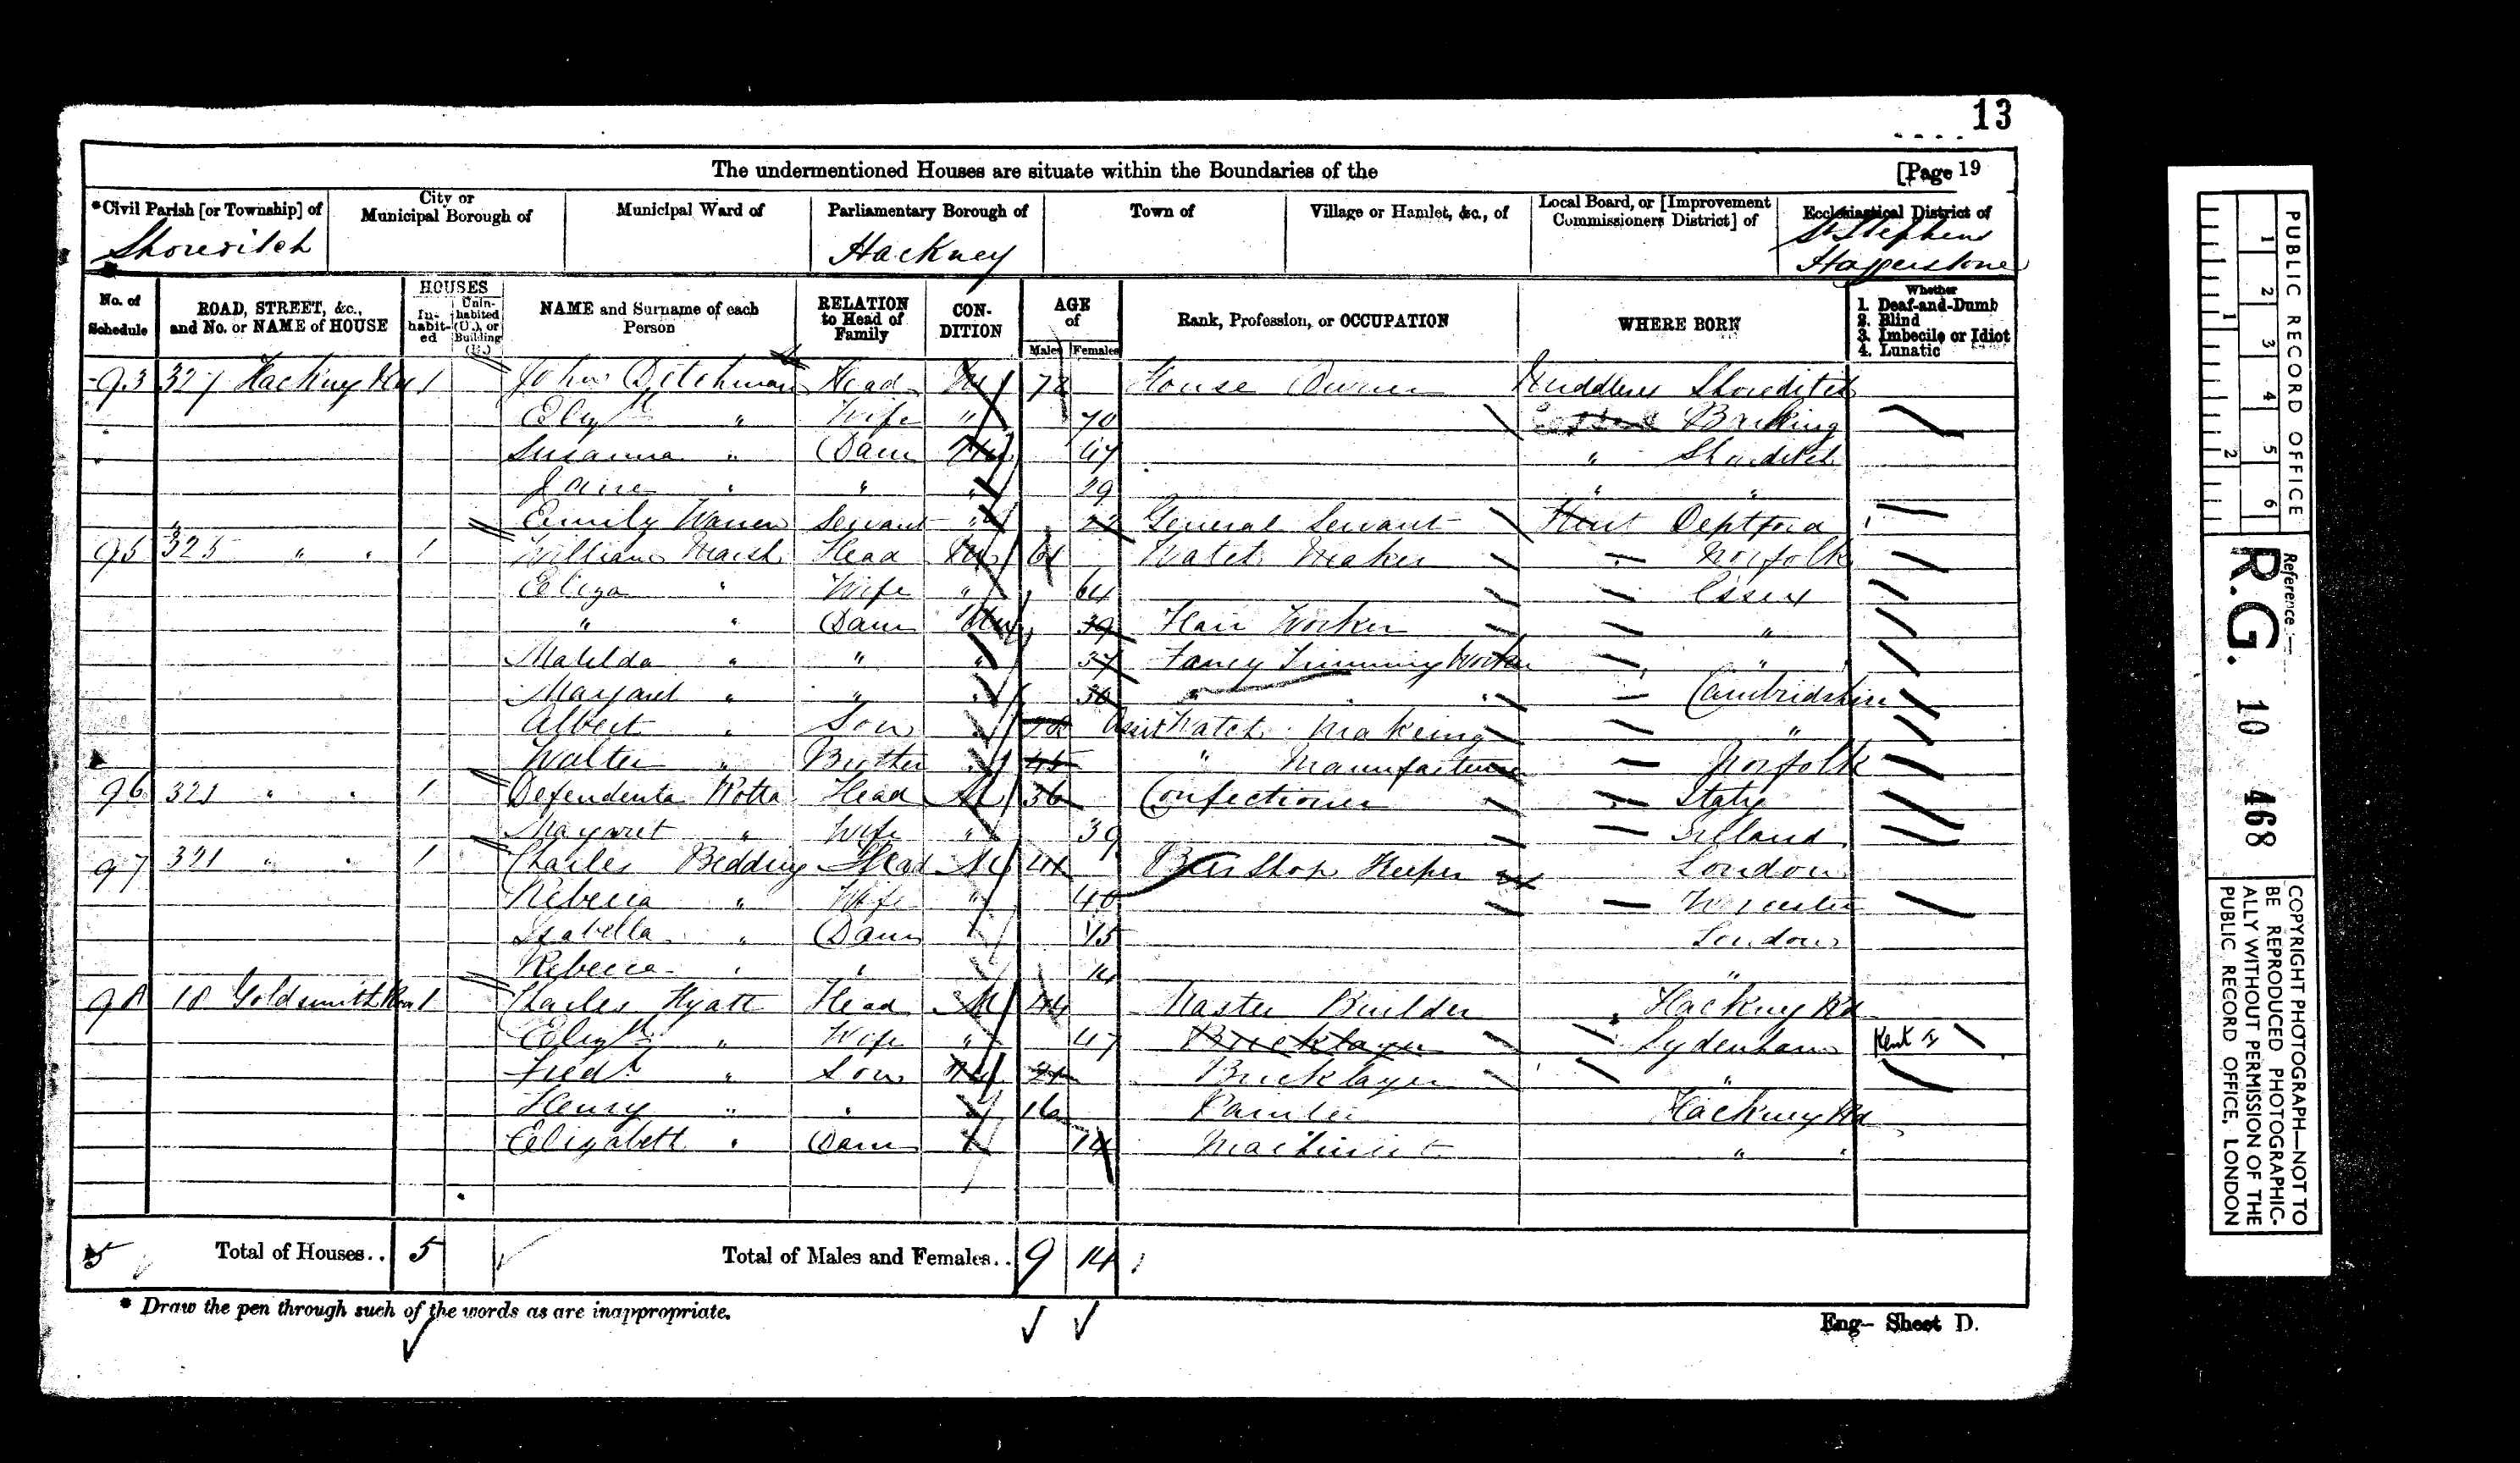 13
The undermentioned Houses are situate within the Boundaries of the [Page 19
*Civil Parish [or Township] of City or Municipal Borough of Municipal Ward of Parliamentary Borough of Town of Village or Hamlet, &c., of Local Board, or [Improvement Commissioners District] of Ecclesiastical District of
Shoreditch Hackney St Stephens Haggerstone
No. of Schedule ROAD, STREET, &c., and No. or NAME of HOUSE HOUSES In-habit-ed Unin-habited (U.), or Building (B.) NAME and Surname of each Person RELATION to Head of Family CON-DITION AGE of Males Females Rank, Profession, or OCCUPATION WHERE BORN Whether 1. Deaf-and-Dumb 2. Blind 3. Imbecile or Idiot 4. Lunatic
93 327 Hackney 1 John Ditchman Head 72 House Owner Shoreditch
Elizth " Wife " 70 Barking
Susanna " Daur 47 " Shoreditch
Jane " " " 29 " "
" Emily Warren Servant " General Servant Kent Deptford
95 325 " " 1 William Marsh Head 61 Watch Maker — Norfolk
Eliza " Wife " 64 — Essex
" " Daur 39 Hair Worker — "
Matilda " " " 37 Fancy Trimming Worker — "
Margaret " " " 30 " " — Cambridshire
Albert " Son Watch Makeing — "
Walter " Brother 45 " Manufacture — Norfolk
96 321 " " 1 Defendenta Rotta Head M 36 Confectioner — Italy
Margaret " Wife " 39 — Irland
97 321 " " 1 Charles Bedding Head M Beer Shop Keeper London
Rebecca " Wife " 40 — Worcester
Isabella " Daur 15 London
Rebecca " " 14 "
98 18 Goldsmith Row 1 Charles Hyatt Head M 44 Master Builder Hackney Rd
Elizth " Wife " 47 Bricklayer Sydenham Kent
Fredk " Son 21 Bricklayer "
Henry " " 16 Painter Hackney Rd
Elizabeth " Daur 14 Machinist " "
5 Total of Houses.. 5 Total of Males and Females.. 9 14
* Draw the pen through such of the words as are inappropriate.
Eng— Sheet D.
PUBLIC RECORD OFFICE
1 2 3 4 5 6
1 2
Reference:—
R.G. 10 468
COPYRIGHT PHOTOGRAPH—NOT TO
BE REPRODUCED PHOTOGRAPHIC-
ALLY WITHOUT PERMISSION OF THE
PUBLIC RECORD OFFICE, LONDON